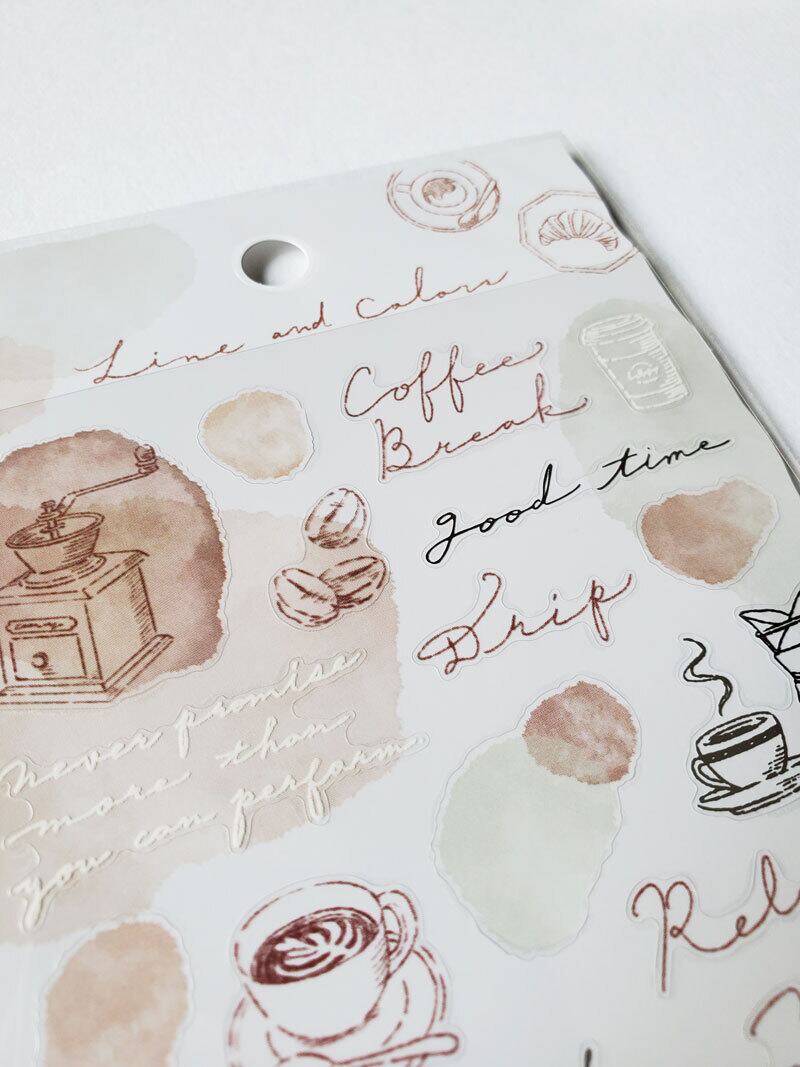 Line and Colors
Coffee
Break
good time
Drip
never promise
more than
you can perform